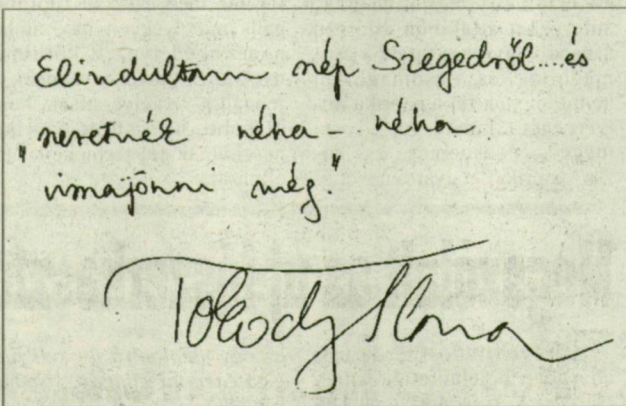 Elindultam szép Szegedről....és
"szeretnék néha - néha
visszajönni még."
Tokody Ilona